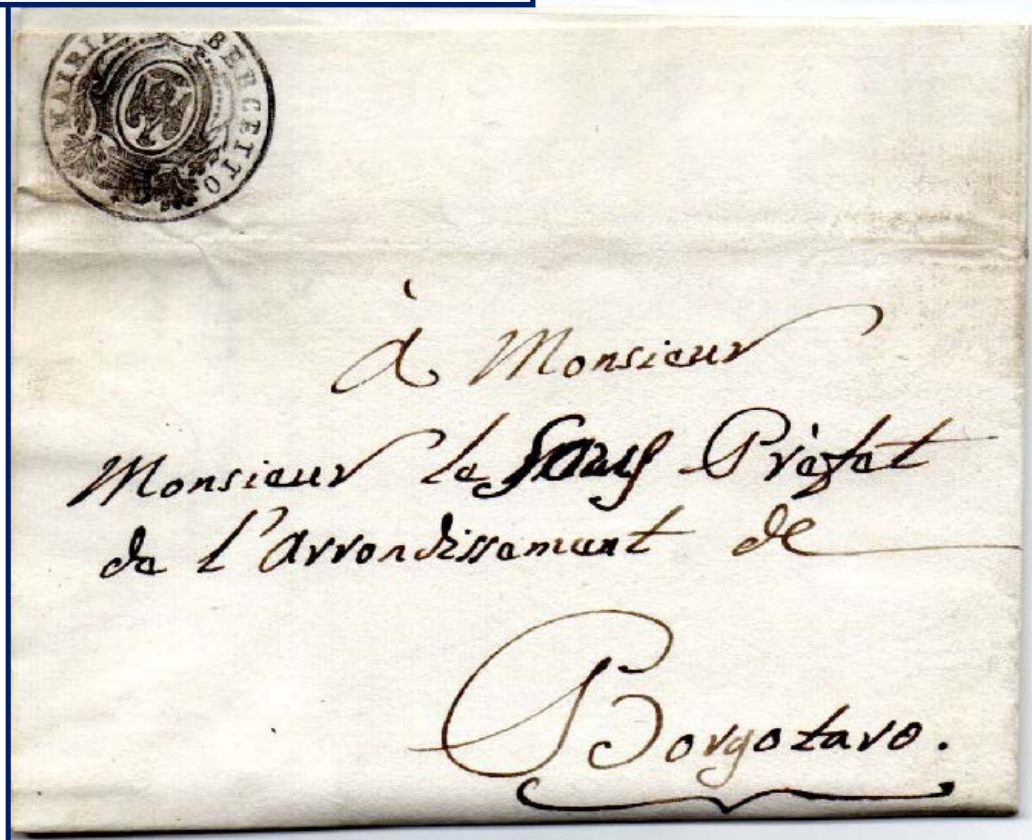 MAIRIE BERCETTO
à Monsieur
Monsieur le Sous Préfet
de l'Arrondissement de
Borgotaro.